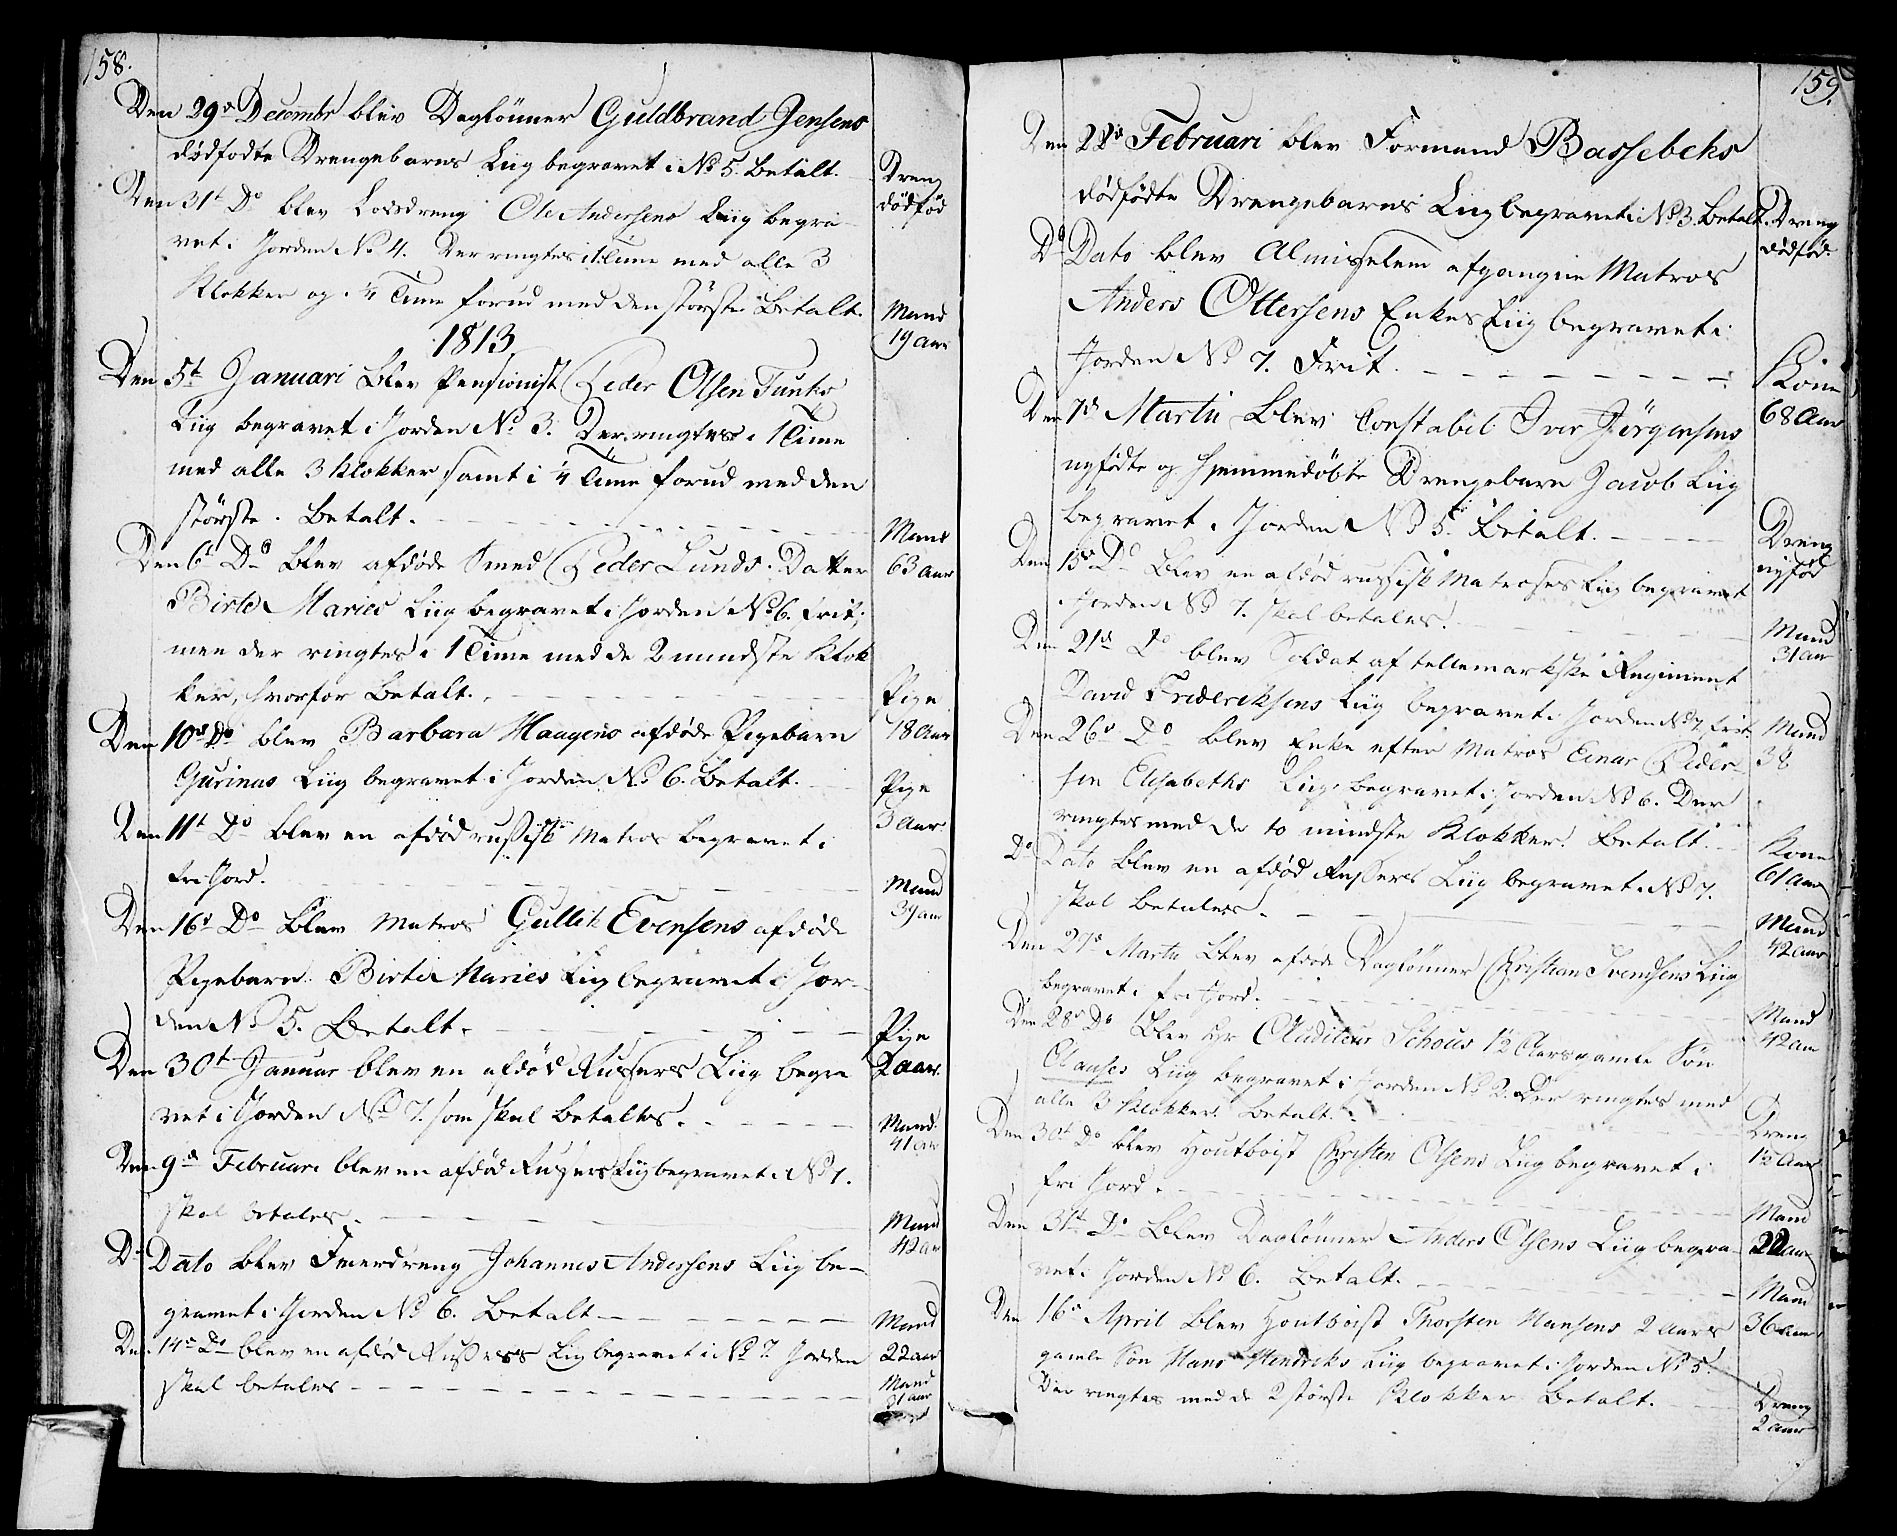 158.
Den 29de Decembr blev Daglønner Guldbrand Jensens
dødfødte Drengebarns Liig begravet i No 5. Betalt.
Dreng
dødfød
Den 31t Do blev Lodsdreng Ole Andersens Liig begra-
vet i Jorden No 4. Der ringtes i 1 Time med alle 3
Klokker og i 1/4 Time forud med den største Betalt.
Mand
19 aar
1813
Den 5t Januari blev Pensionist Peder Olsen Tunks
Liig begravet i Jorden No 3. Der ringtes i 1 Time
med alle 3 Klokker, samt i 1/4 Time forud med den
største. Betalt.
Mand
63 aar
Den 6t Do blev afdøde Smed Peder Lunds Datter
Birte Maries Liig begravet i Jorden No 6. frit;
men der ringtes i 1 Time med de 2 mindste Klok
ker, hvorfor Betalt.
Pige
18 Aar
Den 10de Do blev Barbara Haagens afdøde Pigebarn
Gurinas Liig begravet i Jorden No 6. Betalt.
Pige
3 Aar
Den 11t Do blev en afdød russisk Matros begravet i
fri Jord.
Mand
39 aar
Den 16de Do blev Matros Gullik Evensens afdøde
Pigebarn Birte Maries Liig begravet i Jor-
den No 5. Betalt.
Pige
2 aar
Den 30t Januar blev en afdød Russers Liig begra
vet i Jorden No 7. som skal betales.
Mand
41 aar
Den 9de Februari blev en afdød Russers Liig begravet i No 7.
skal betales.
Mand
42 aar
Do Dato blev Dreng Johannes Andersens Liig be-
gravet i Jorden No 6. Betalt
Mand
22 aar
Den 14de Do blev en afdød Russers Liig begravet i No 7. Jorden
skal betales
Mand
31 aar
159.
Den 22de Februari blev Formand Bassebeks
dødfødte Drengebarns Liig begravet i No 3. Betalt.
Dreng
dødfød.
Do Dato blev Almisselem afgangne Matros
Anders Ottersens Enkes Liig begravet i
Jorden No 7. Frit.
Kone
68 Aar
Den 7de Martii blev Constabel Iver Jörgensens
nyfødte og hjemmedøbte Drengebarn Jacob Liig
begravet i Jorden No 5. Betalt.
Dreng
nyfød
Den 15de Do blev en afdød russisk Matroses Liig begravet
i Jorden No 7. skal betales.
Mand
31 aar
Den 21de Do blev Soldat af tellemarkske Regiment
David Fridericksens Liig begravet i Jorden No 7. frit
Mand
38
Den 26de Do blev Enke efter Matros Einar Peder-
sen Elisabeths Liig begravet i Jorden No 6. Der
ringtes med de to mindste Klokker. Betalt.
Kone
61 aar
Do Dato blev en afdød Russers Liig begravet i No 7.
skal betales.
Mand
42 aar
Den 27de Martii blev afdøde Daglønner Christian Svendsens Liig
begravet i fri Jord.
Mand
42 aar
Den 28de Do blev Hr Auditeur Schous 1 1/2 Aars gamle Søn
Clauses Liig begravet i Jorden No 2. Der ringtes med
alle 3 Klokker. Betalt.
Dreng
1 1/2 Aar
Den 30t Do blev Houtboist Christen Olsens Liig begravet i
fri Jord.
Mand
22 aar
Den 31t Do blev Daglønner Anders Olsens Liig begra-
vet i Jorden No 6. Betalt.
Mand
36 aar
Den 16de April blev Houtboist Thorsten Hansens 2 Aars
gamle Søn Hans Hendriks Liig begravet i Jorden No 5.
Der ringtes med de 2 største Klokker. Betalt.
Dreng
2 aar